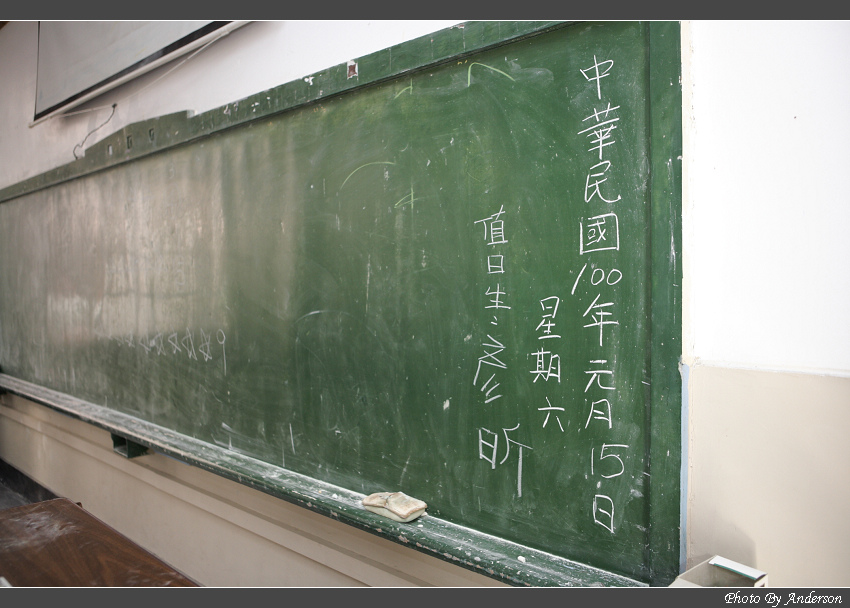 中華民國100年元月15日
星期六
值日生:彥昕
Photo By Anderson